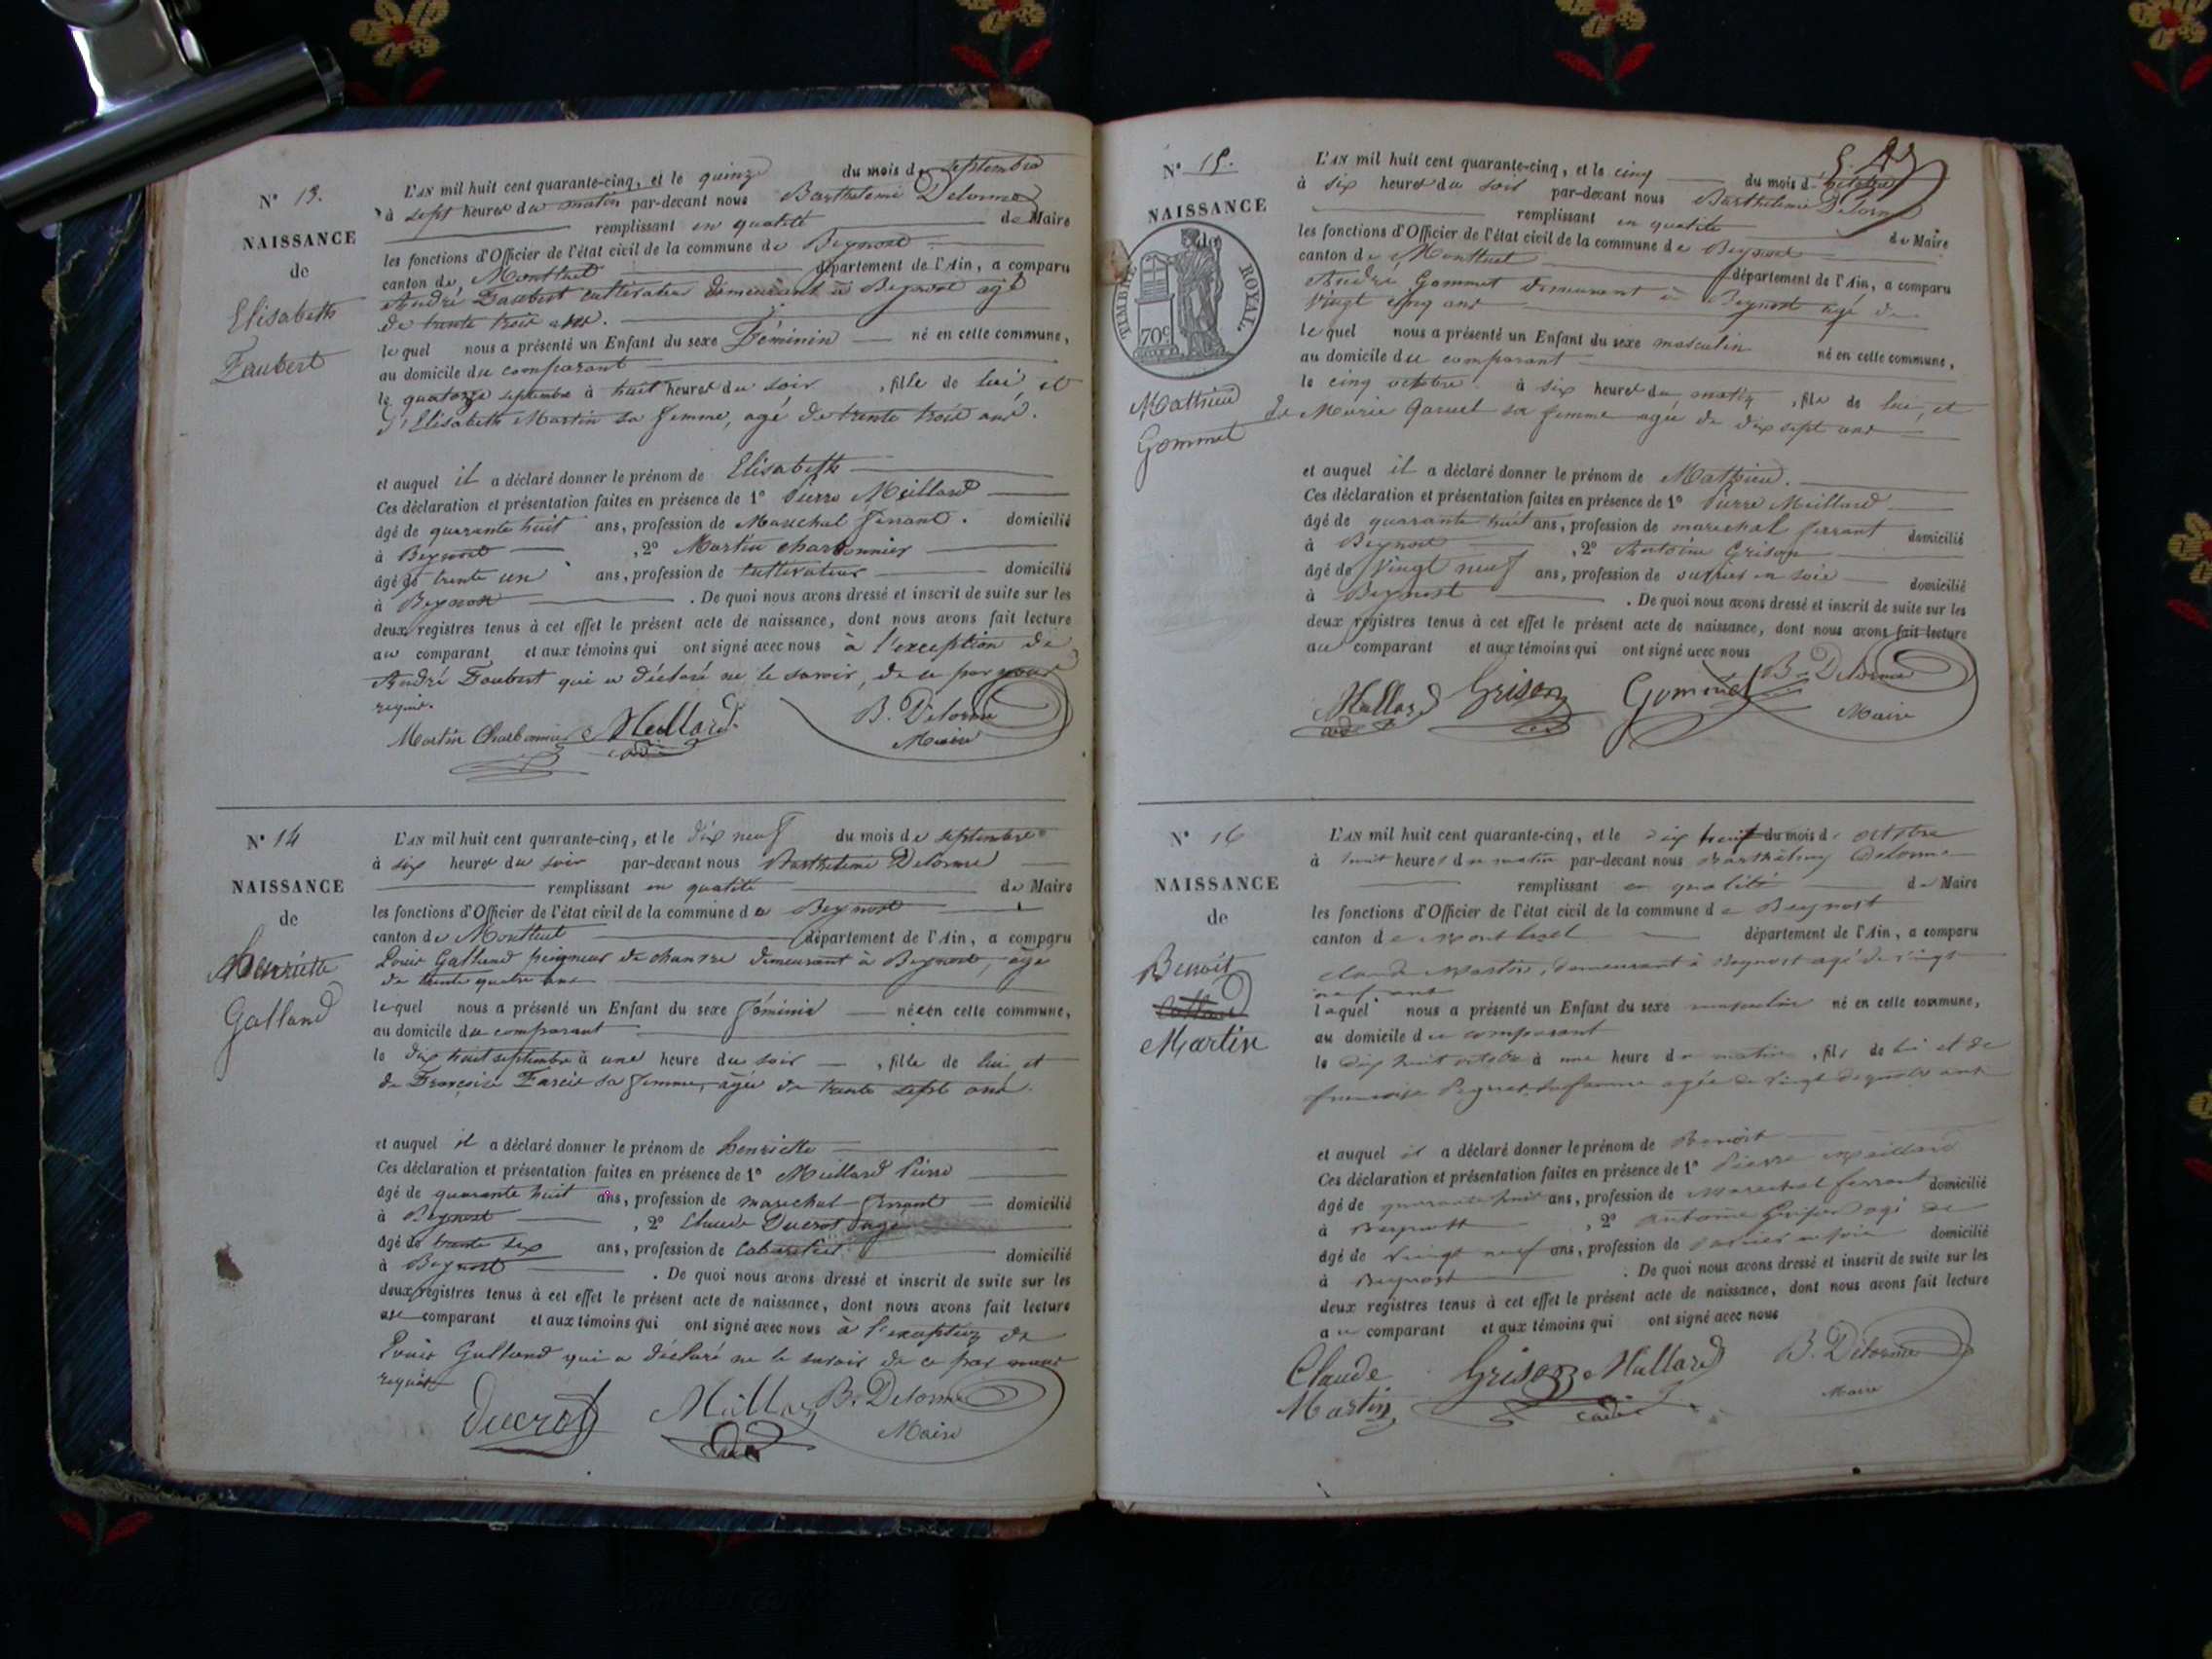 N° 13.
NAISSANCE
de
Elisabeth
Faubert
L'AN mil huit cent quarante-cinq, et le quinze du mois de septembre
à sept heures du matin par-devant nous Barthelemi Delorme
remplissant en qualité de Maire
les fonctions d'Officier de l'état civil de la commune de Beynost
canton de Montluel département de l'Ain, a comparu
André Faubert cultivateur demeurant à Beynost agé
de trente trois ans.
lequel nous a présenté un Enfant du sexe Féminin né en cette commune,
au domicile du comparant
le quatorze septembre à huit heures du soir, fille de lui et
d'Elisabeth Martin sa femme, agé de trente trois ans.
et auquel il a déclaré donner le prénom de Elisabeth
Ces déclaration et présentation faites en présence de 1° Pierre Meillard
âgé de quarante huit ans, profession de Maréchal ferrant. domicilié
à Beynost, 2° Martin charbonnier
âgé de trente un ans, profession de cultivateur domicilié
à Beynost. De quoi nous avons dressé et inscrit de suite sur les
deux registres tenus à cet effet le présent acte de naissance, dont nous avons fait lecture
au comparant et aux témoins qui ont signé avec nous à l'exception de
André Faubert qui a déclaré ne le savoir, de ce par nous
requis.
Martin Charbonnier Meillard B. Delorme
Maire
N° 14
NAISSANCE
de
henriette
Galland
L'AN mil huit cent quarante-cinq, et le dix neuf du mois de septembre
à six heures du soir par-devant nous Barthelemi Delorme
remplissant en qualité de Maire
les fonctions d'Officier de l'état civil de la commune de Beynost
canton de Montluel département de l'Ain, a comparu
Louis Galland peigneur de chanvre demeurant à Beynost, agé
de trente quatre ans
lequel nous a présenté un Enfant du sexe féminin née en cette commune,
au domicile du comparant
le dix huit septembre à une heure du soir, fille de lui et
de Françoise sa femme, agée de trente sept ans.
et auquel il a déclaré donner le prénom de henriette
Ces déclaration et présentation faites en présence de 1° Meillard Pierre
âgé de quarante huit ans, profession de marechal ferrant domicilié
à Beynost, 2° Claude Ducrot agé
âgé de trente six ans, profession de cabaretier domicilié
à Beynost. De quoi nous avons dressé et inscrit de suite sur les
deux registres tenus à cet effet le présent acte de naissance, dont nous avons fait lecture
au comparant et aux témoins qui ont signé avec nous à l'exception de
Louis Galland qui a déclaré ne le savoir de ce par nous
requis
Ducrot Meillard B. Delorme
Maire
N° 15.
NAISSANCE
de
TIMBRE ROYAL.
70c
Mathieu
Gommet
L'AN mil huit cent quarante-cinq, et le cinq du mois d'octobre
à six heures du soir par-devant nous Barthelemie Delorme
remplissant en qualité de Maire
les fonctions d'Officier de l'état civil de la commune de Beynost
canton de Montluel département de l'Ain, a comparu
André Gommet demeurant à Beynost agé de
vingt cinq ans
lequel nous a présenté un Enfant du sexe masculin né en cette commune,
au domicile du comparant
le cinq octobre à six heures du matin, fils de lui, et
de Marie sa femme agée de dix sept ans
et auquel il a déclaré donner le prénom de Mathieu.
Ces déclaration et présentation faites en présence de 1° Pierre Meillard
âgé de quarante huit ans, profession de marechal ferrant domicilié
à Beynost, 2° Antoine Grison
âgé de vingt neuf ans, profession de ouvrier en soie domicilié
à Beynost. De quoi nous avons dressé et inscrit de suite sur les
deux registres tenus à cet effet le présent acte de naissance, dont nous avons fait lecture
au comparant et aux témoins qui ont signé avec nous
Meillard Grison Gommet B. Delorme
Maire
N° 16
NAISSANCE
de
Benoit
Martin
L'AN mil huit cent quarante-cinq, et le dix huit du mois d'octobre
à huit heures du matin par-devant nous Barthélemy Delorme
remplissant en qualité de Maire
les fonctions d'Officier de l'état civil de la commune de Beynost
canton de Montluel département de l'Ain, a comparu
Claude Martin, demeurant à Beynost agé de vingt
neuf ans
lequel nous a présenté un Enfant du sexe masculin né en cette commune,
au domicile du comparant
le dix huit octobre à une heure du matin, fils de lui et de
françoise sa femme agée de vingt quatre ans
et auquel il a déclaré donner le prénom de Benoit
Ces déclaration et présentation faites en présence de 1° Pierre Meillard
âgé de quarante huit ans, profession de Marechal ferrant domicilié
à Beynost, 2° Antoine Grison agé de
âgé de vingt neuf ans, profession de ouvrier en soie domicilié
à Beynost. De quoi nous avons dressé et inscrit de suite sur les
deux registres tenus à cet effet le présent acte de naissance, dont nous avons fait lecture
au comparant et aux témoins qui ont signé avec nous
Claude Grison Meillard B. Delorme
Martin Maire